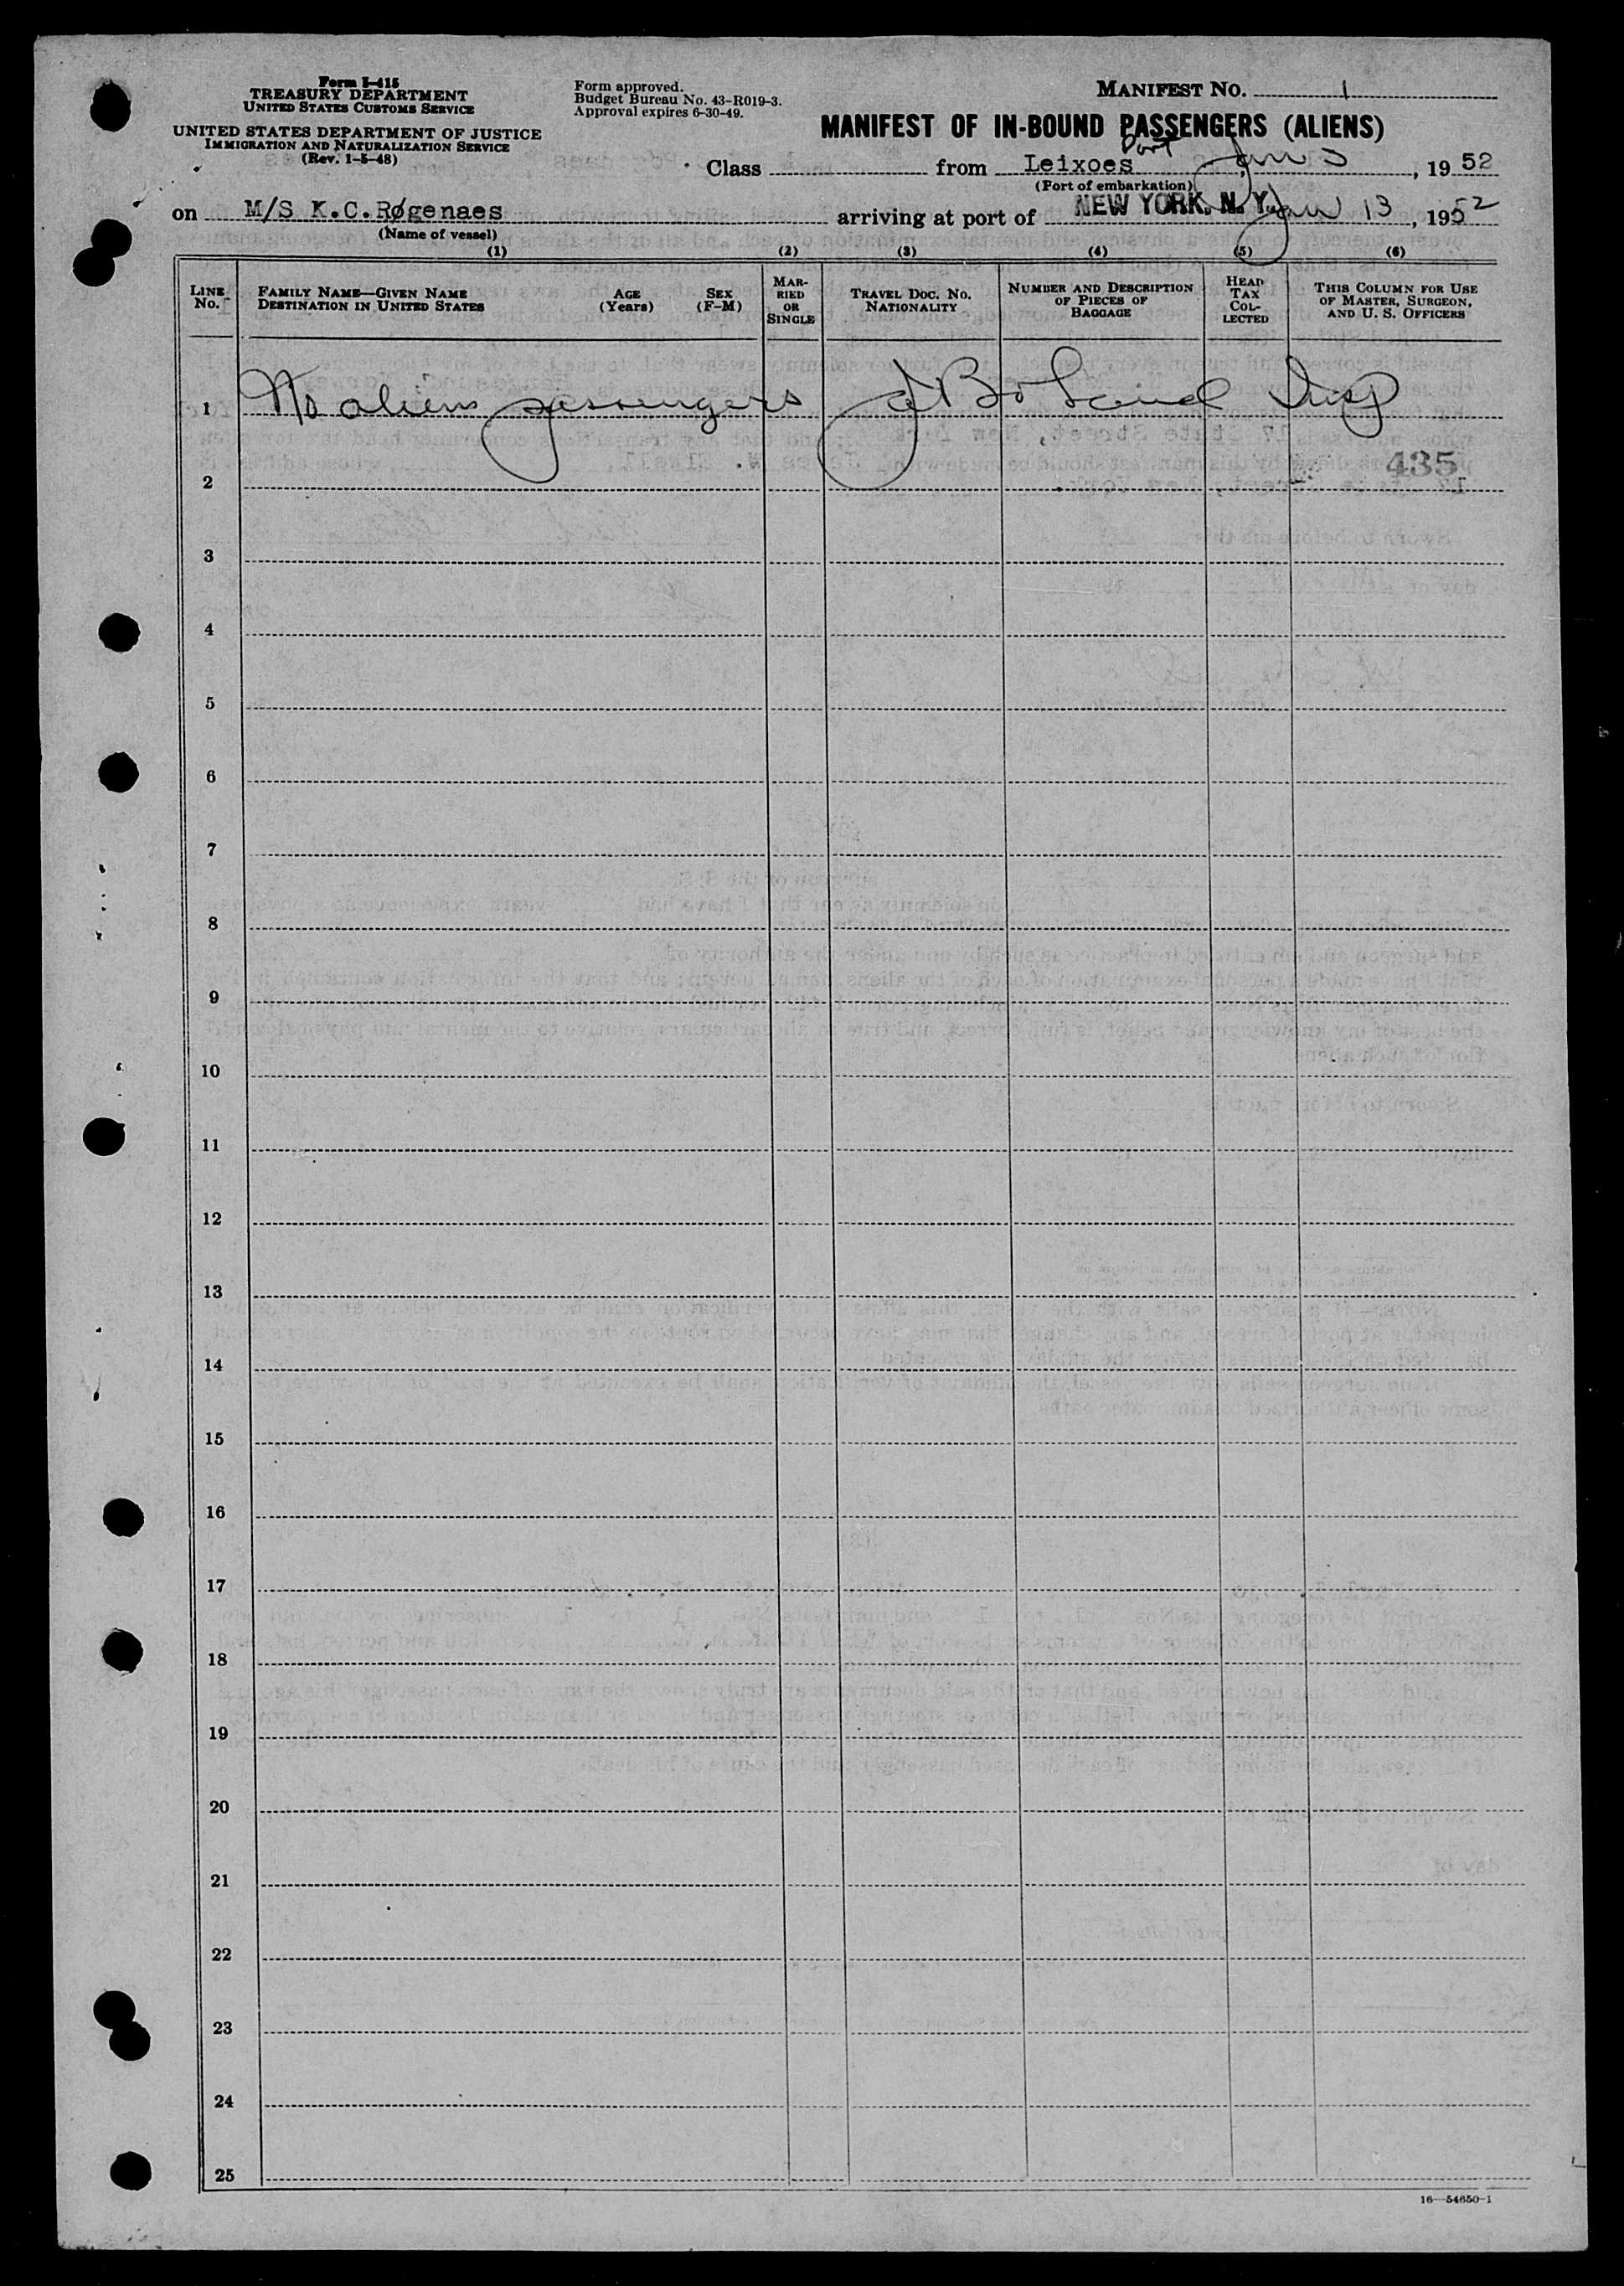 Form I-415
TREASURY DEPARTMENT
UNITED STATES CUSTOMS SERVICE
UNITED STATES DEPARTMENT OF JUSTICE
IMMIGRATION AND NATURALIZATION SERVICE
(Rev. 1-5-48)
Form approved.
Budget Bureau No. 43-R019-3.
Approval expires 6-30-49.
MANIFEST NO. 1
MANIFEST OF IN-BOUND PASSENGERS (ALIENS)
Port
Class from Leixoes, Jan 3, 1952
(Port of embarkation)
on M/S K.C.Røgenaes arriving at port of NEW YORK, N. Y. Jan 13, 1952
(Name of vessel)
(1) (2) (3) (4) (5) (6)
LINE No. FAMILY NAME—GIVEN NAME DESTINATION IN UNITED STATES AGE (Years) SEX (F-M) MARRIED OR SINGLE TRAVEL DOC. NO. NATIONALITY NUMBER AND DESCRIPTION OF PIECES OF BAGGAGE HEAD TAX COLLECTED THIS COLUMN FOR USE OF MASTER, SURGEON, AND U. S. OFFICERS
1 No aliens passengers Insp
435
2
3
4
5
6
7
8
9
10
11
12
13
14
15
16
17
18
19
20
21
22
23
24
25
16—54650-1